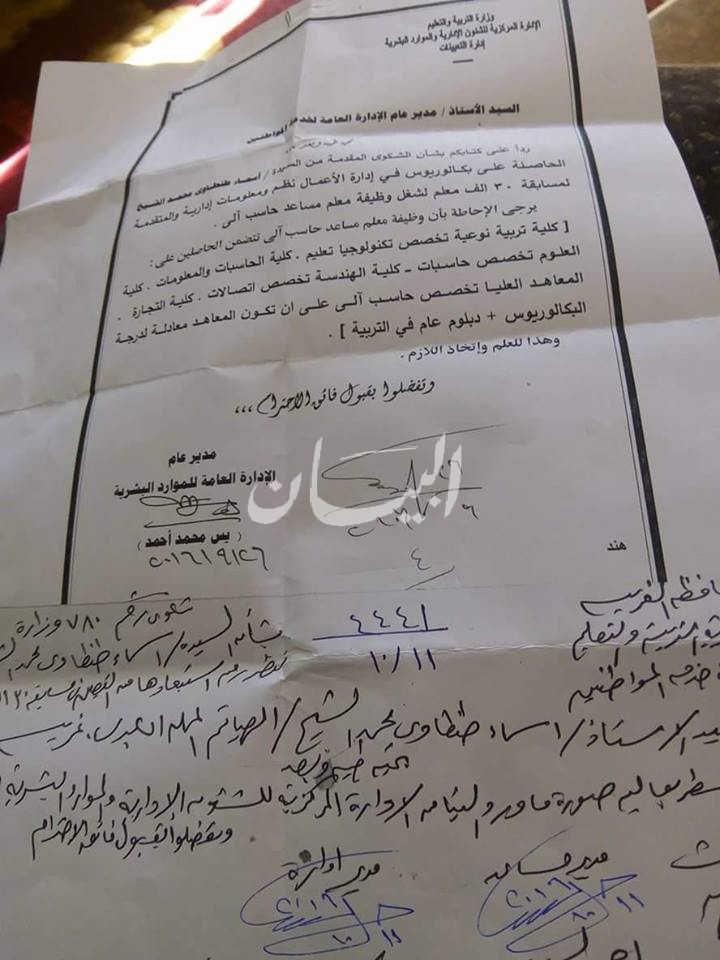 وزارة التربية والتعليم
الإدارة المركزية للشئون الإدارية والموارد البشرية
إدارة التعيينات
السيد الأستاذ / مدير عام الإدارة العامة لخدمة المواطنين
تحية طيبة وبعد ،،،
ردا على كتابكم بشأن الشكوى المقدمة من السيدة / أسماء طنطاوى محمد الشيخ
الحاصلة على بكالوريوس في إدارة الأعمال نظم ومعلومات إدارية والمتقدمة
لمسابقة ٣٠ الف معلم لشغل وظيفة معلم مساعد حاسب آلى .
يرجى الإحاطة بأن وظيفة معلم مساعد حاسب آلى تتضمن الحاصلين على :
[ كلية تربية نوعية تخصص تكنولوجيا تعليم . كلية الحاسبات والمعلومات . كلية
العلوم تخصص حاسبات – كلية الهندسة تخصص اتصالات . كلية التجارة .
المعاهد العليا تخصص حاسب آلى على ان تكون المعاهد معادلة لدرجة
البكالوريوس + دبلوم عام في التربية ] .
وهذا للعلم وإتخاذ اللازم .
وتفضلوا بقبول فائق الاحترام ،،،
مدير عام
الإدارة العامة للموارد البشرية
البيان
( يس محمد أحمد )
٢٠١٦/٩/٢٦
هند
٤
شكوى رقم ٧٨٠ وزارة
بشأن السيدة / أسماء طنطاوى محمد
٤٤٤١
١٠/١١
التربية والتعليم
خدمة المواطنين
الأستاذ / أسماء طنطاوى محمد الشيخ /
تحية طيبة وبعد
صورة ما ورد إلينا من الإدارة المركزية للشئون الإدارية والموارد البشرية
وتفضلوا بقبول فائق الاحترام
مدير إدارة